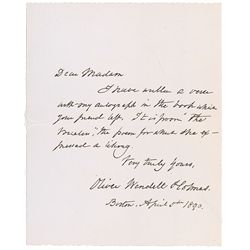 Dear Madam
I have written a verse
with my autograph in the book which
your friend left. It is from "The
Voiceless", the poem for which she ex-
pressed a liking.
Very truly yours,
Oliver Wendell Holmes.
Boston, April 5th 1890.